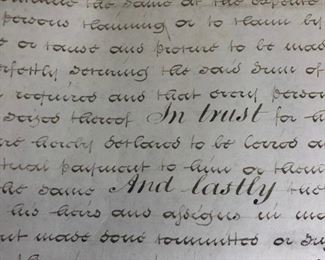 the same at the expense
persons claiming or to claim by
or cause and procure to be made
perfectly securing the said sum of
required and that every person
seized thereof In trust for h
are hereby declared to be
payment to him or them
the same And lastly the
his heirs and assigns in
made done committed or